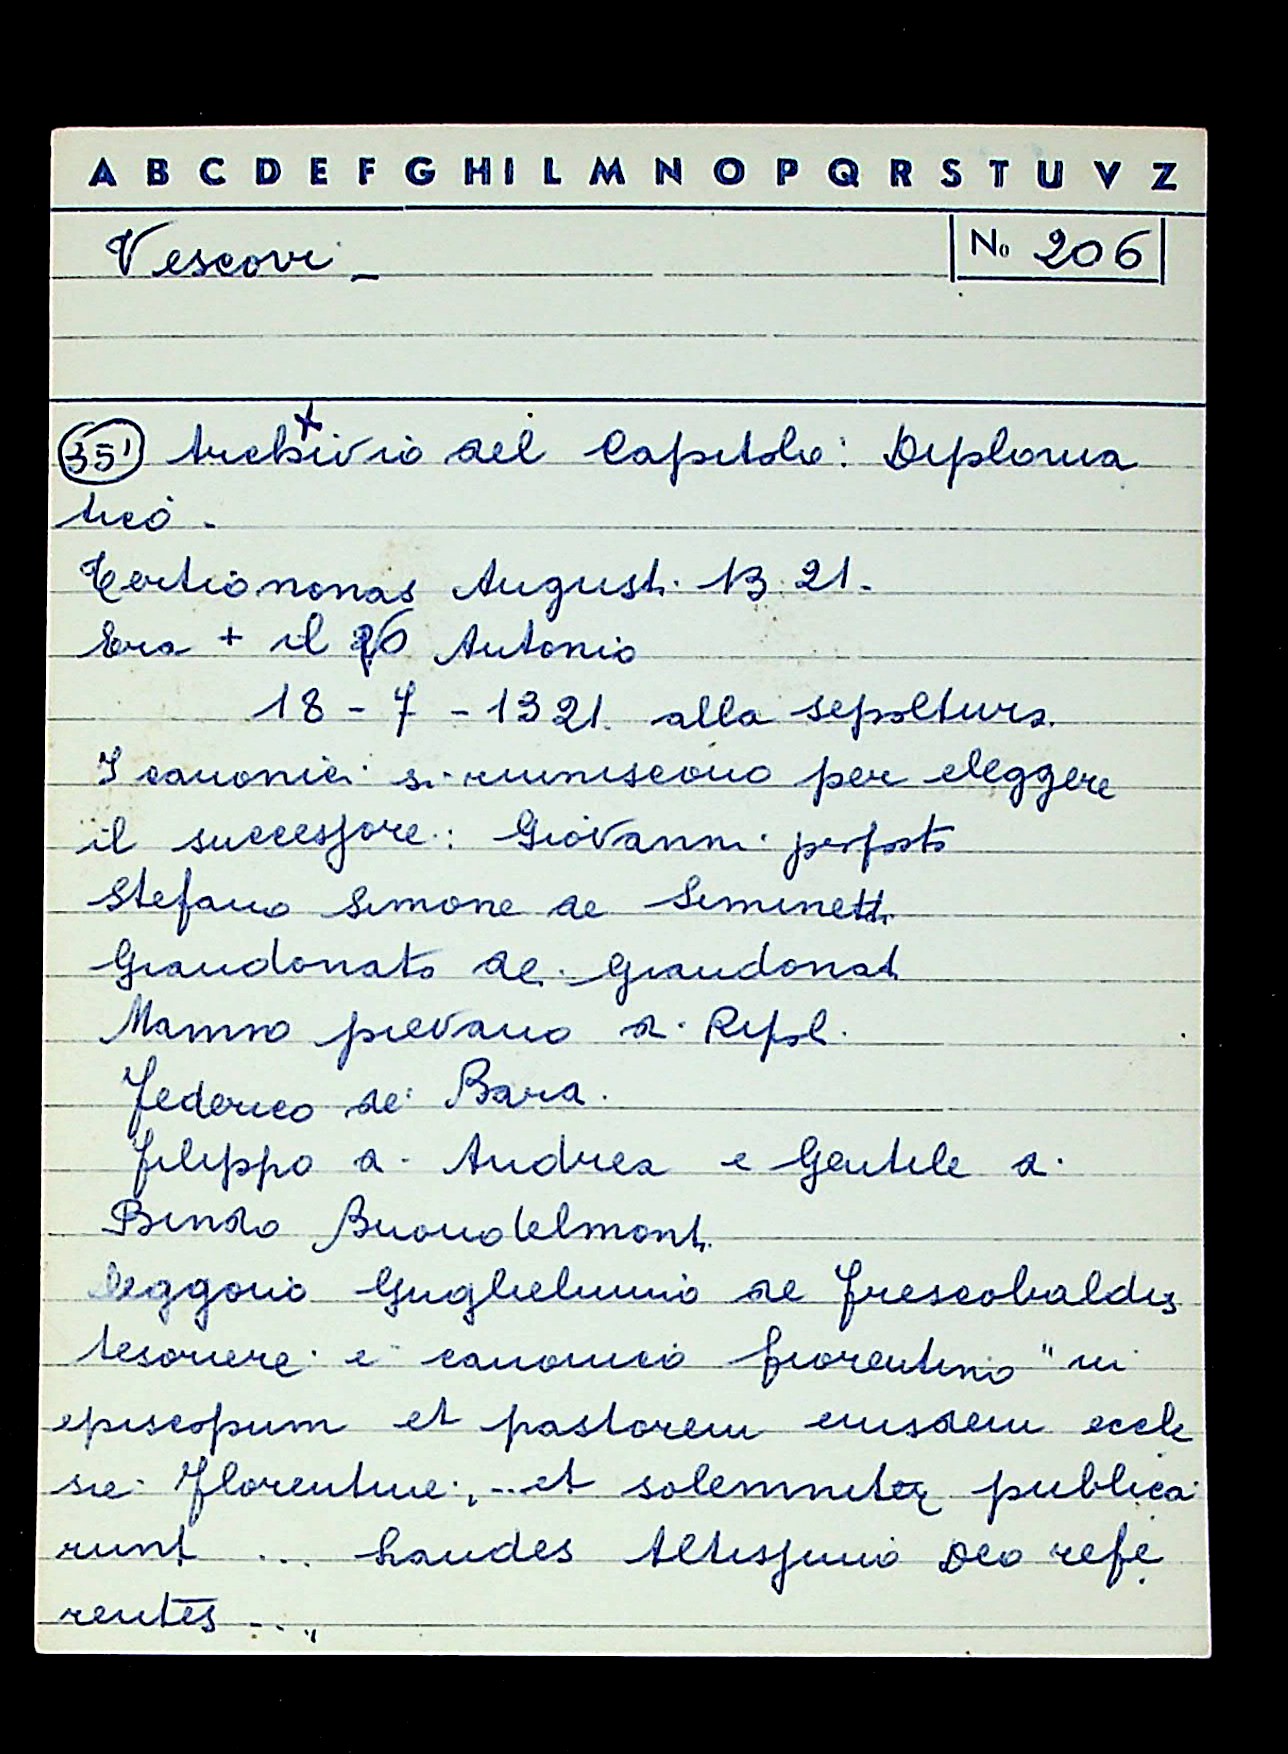 A B C D E F G H I L M N O P Q R S T U V Z
Vescovi - No 206
351 Archivio del Capitolo: Diploma
tico.
Tertio nonas August. 1321.
Era + il Antonio
18-7-1321 alla sepoltura.
I canonici si riuniscono per eleggere
il successore: Giovanni proposto
Stefano Simone de Siminetti
Giandonato de Giandonati
Manno pievano di Ripoli.
Federico de Bara.
Filippo di Andrea e Gentile di
Bindo Buondelmonti.
leggono Guglielmino de Frescobaldis
tesoriere e canonico fiorentino "in
episcopum et pastorem eiusdem eccle
sie Florentine, .. et solemniter publica
runt ... Laudes Altissimo Deo refe
rentes ..."